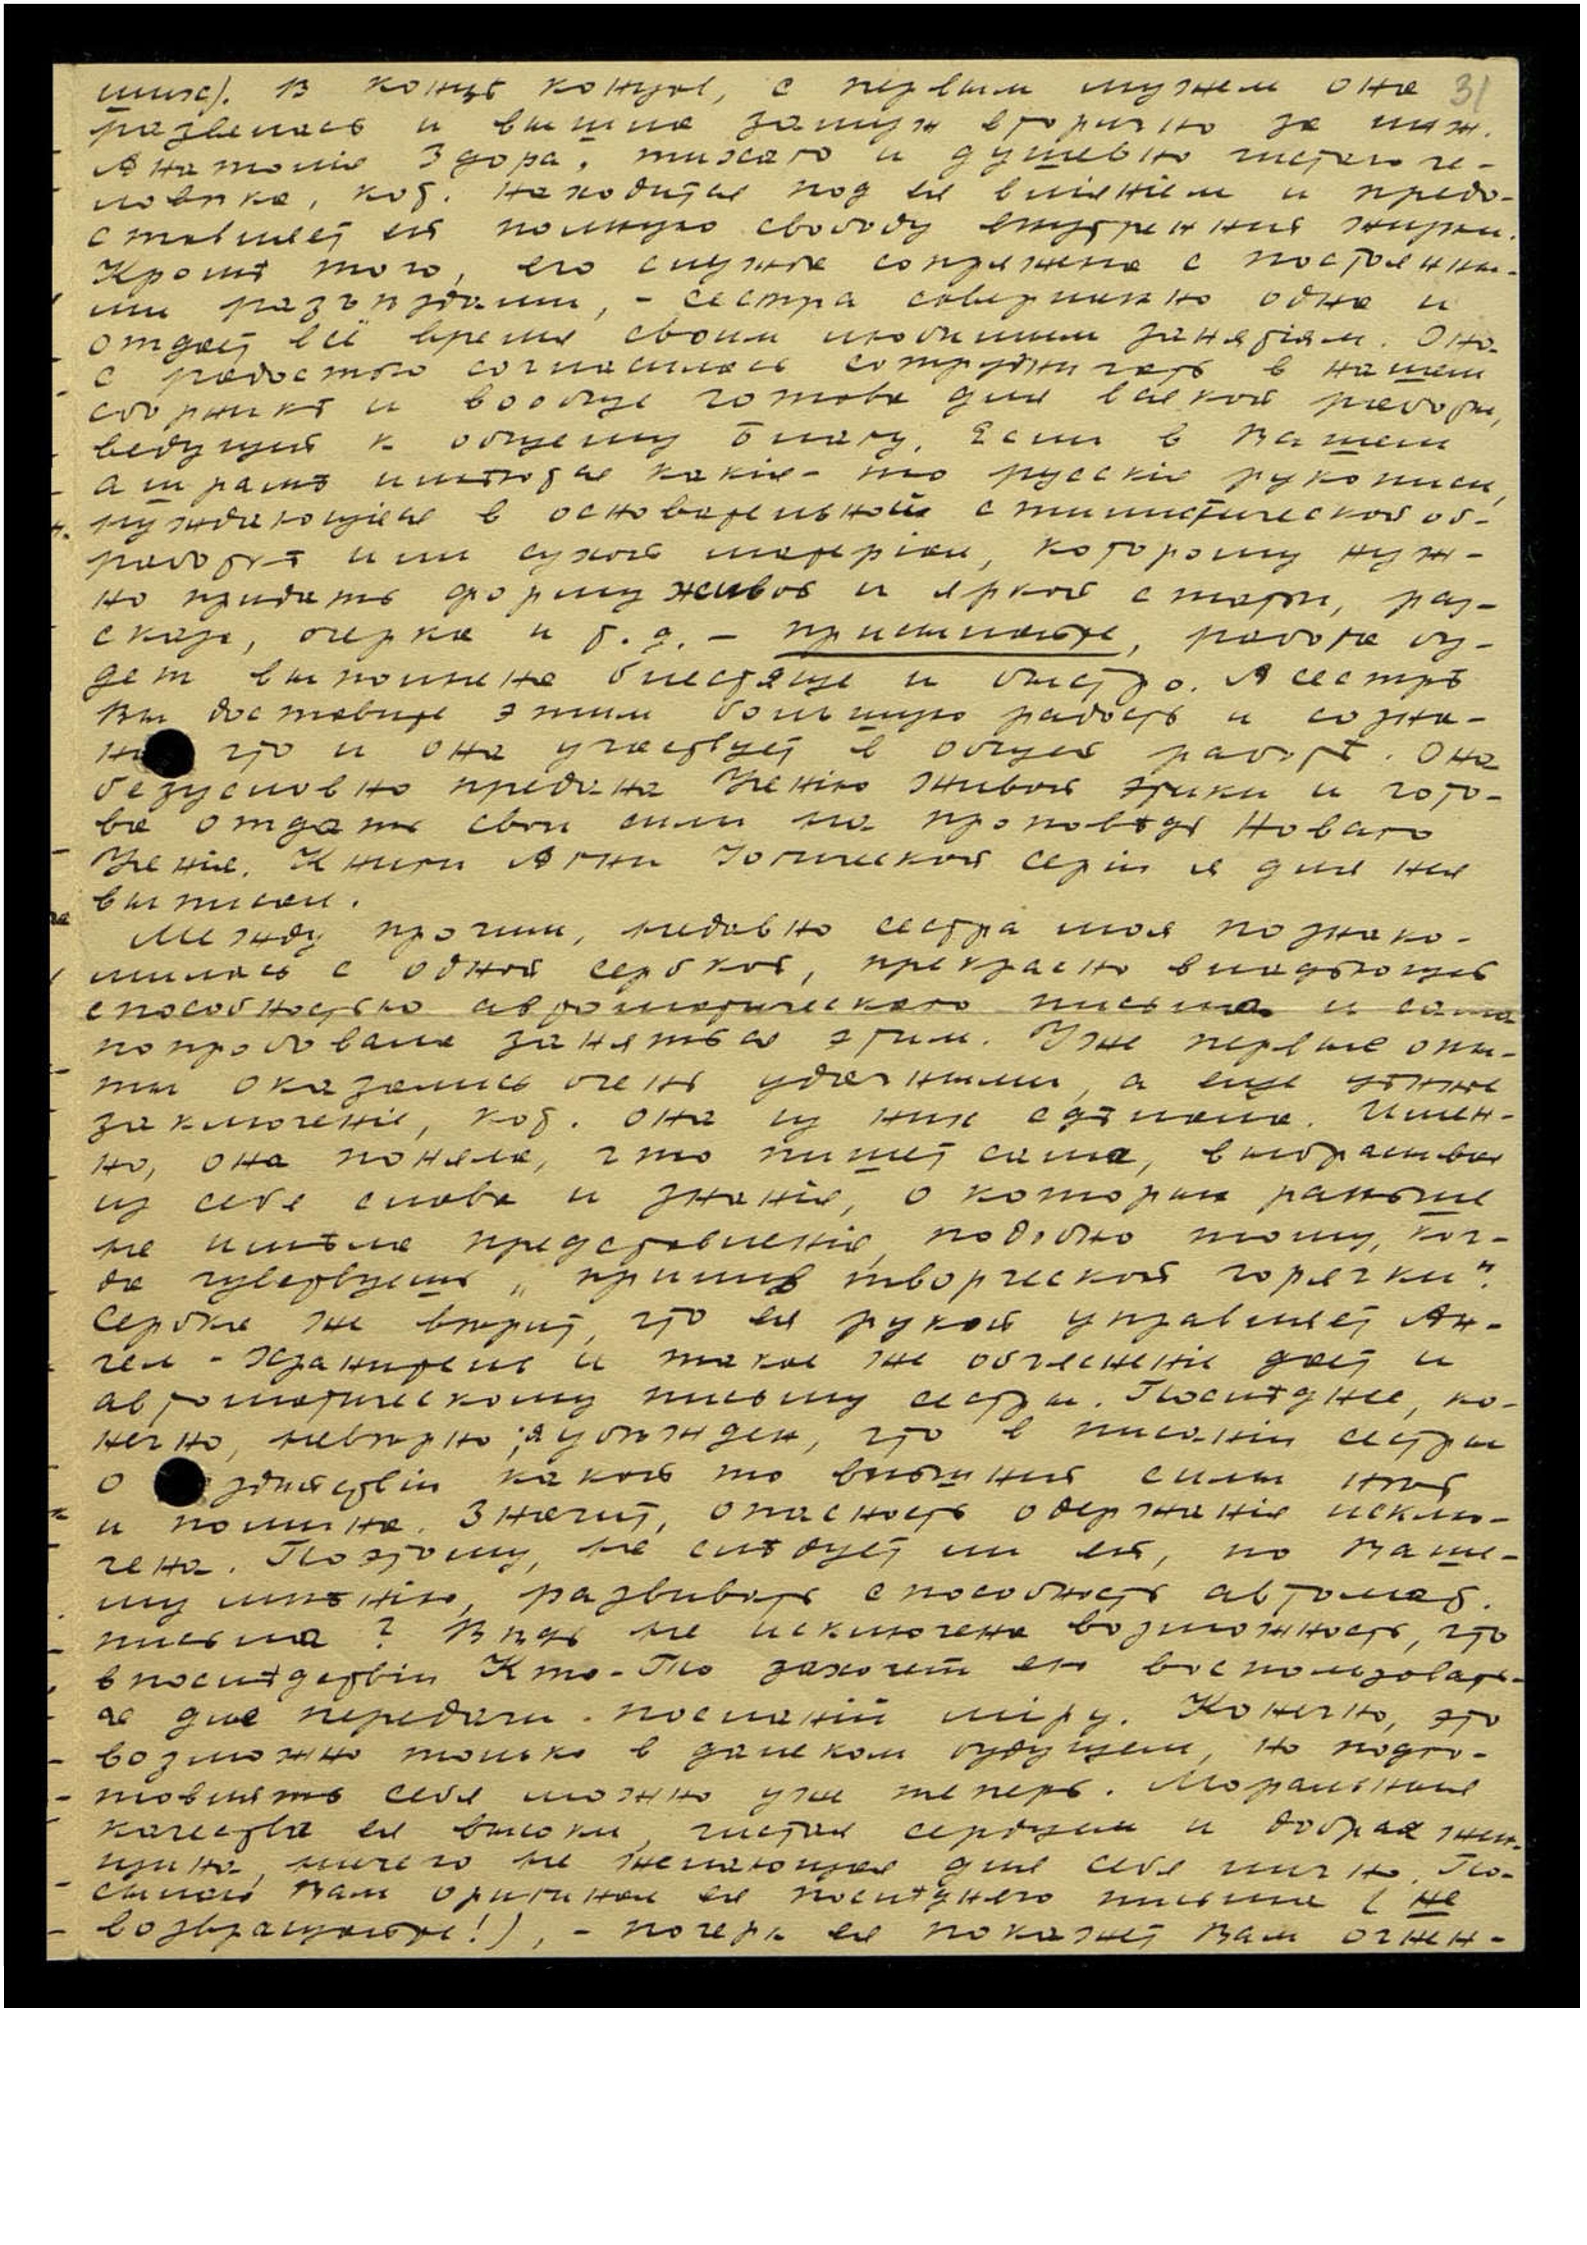 31
щихс). В концѣ концов, с первым мужем она
развелась и вышла замуж вторично за инж.
Анатолія Здора, тихаго и душевно чистаго че-
ловѣка, кот. находится под ея вліяніем и предо-
ставляет ей полную свободу внутренней жизни.
Кромѣ того, его служба сопряжена с постоянны-
ми разъѣздами, - сестра совершенно одна и
отдает всё время своим любимым занятіям. Она
с радостью согласилась сотрудничать в нашем
сборникѣ и вообще готова для всякой работы,
ведущей к общему Благу. Если в Вашем
Ашрамѣ имѣются какіе-то русскіе рукописи,
нуждающіеся в основательной стилистической об-
работкѣ или сухой матеріал, которому нуж-
но придать форму живой и яркой статьи, раз-
сказа, очерка и т. д. - присылайте, работа бу-
дет выполнена блестяще и быстро. А сестрѣ
Вы доставите этим большую радость и созна-
что и она участвует в общей работѣ. Она
безусловно предана Ученію Живой Этики и гото-
ва отдать свои силы на проповѣдь Новаго
Ученія. Книги Агни Іогической серіи я для нея
выписал.
Между прочим, недавно сестра моя познако-
милась с одной сербкой, прекрасно владѣющей
способностью автоматическаго письма и сама
попробовала заняться этим. Уже первые опы-
ты оказались очень удачными, а еще
заключеніе, кот. она из них сдѣлала. Имен-
но, она поняла, что пишет сама, выбрасывая
из себя слова и знанія, о которых раньше
не имѣла представленія, подобно тому, ког-
да чувствуешь „прилив творческой горячки".
Сербка же вѣрит, что ея рукой управляет Ан-
гел-Хранитель и такое же объясненіе дает и
автоматическому письму сестры. Послѣднее, ко-
нечно, невѣрно; я убѣжден, что в писаніи сестры
о здѣйствіи какой то внѣшней силы нѣт
и помина. Значит, опасность одержанія исклю-
чена. Поэтому, не слѣдует ли ей, по Ваше-
му мнѣнію, развивать способность автомат.
письма? Вѣдь не исключена возможность, что
впослѣдствіи Кто-То захочет ею воспользовать-
ся для передачи посланій міру. Конечно, это
возможно только в далеком будущем, но подго-
товлять себя можно уже теперь. Моральныя
качества ея высоки, чистая сердцем и добрая жен-
щина, ничего не желающая для себя лично. По-
сылаю Вам оригинал ея послѣдняго письма (не
возвращайте!), - почерк ея покажет Вам огнен-